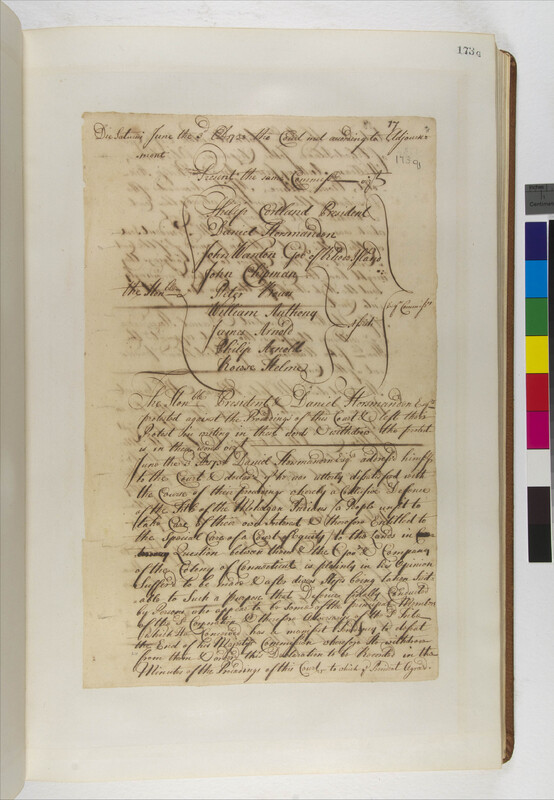 173a
77
Die Saturni June the 3d AD 1738 the Court met according to Adjourn-
ment
173a
Present the same Commissrs
Philip Cortland President
Daniel Horsmanden
John Wanton Govr of Rhode Island
John Chipman
the Honble Peter
William Anthony
James Arnold Assist
Philip Arnold
Rouse Helme
The Honble President & Daniel Horsmanden Esqr
protested against the Proceedings of this Court & left their
Protest in writing in that & withdrew the protest
is in these words
June the 3d AD 1738 Daniel Horsmanden Esqr himself
to the Court & declared he was utterly dissatisfied with
the Course of their proceedings whereby a Defence
of the Title of the Mohegan Indians (a People unapt to
take Care of their own Interest & therefore Entitled to
the Special Care of a Court of Equity) to the Lands in
Question between them & the Govr & Company
of the Colony of Connecticut is plainly in his Opinion
Suffered to be made & after divers Steps being taken
able to Such a purpose that Defence Executed
by Persons who appear to be Some of the principal Members
of the sd Corporation & therefore of the sd Title
which He Conceives has a manifest Tendency to defeat
the End of his Majestys Commission wherefore He withdrew
from them & this Declaration to be Recorded in the
Minutes of the Proceedings of this Court to which ye President Agreed